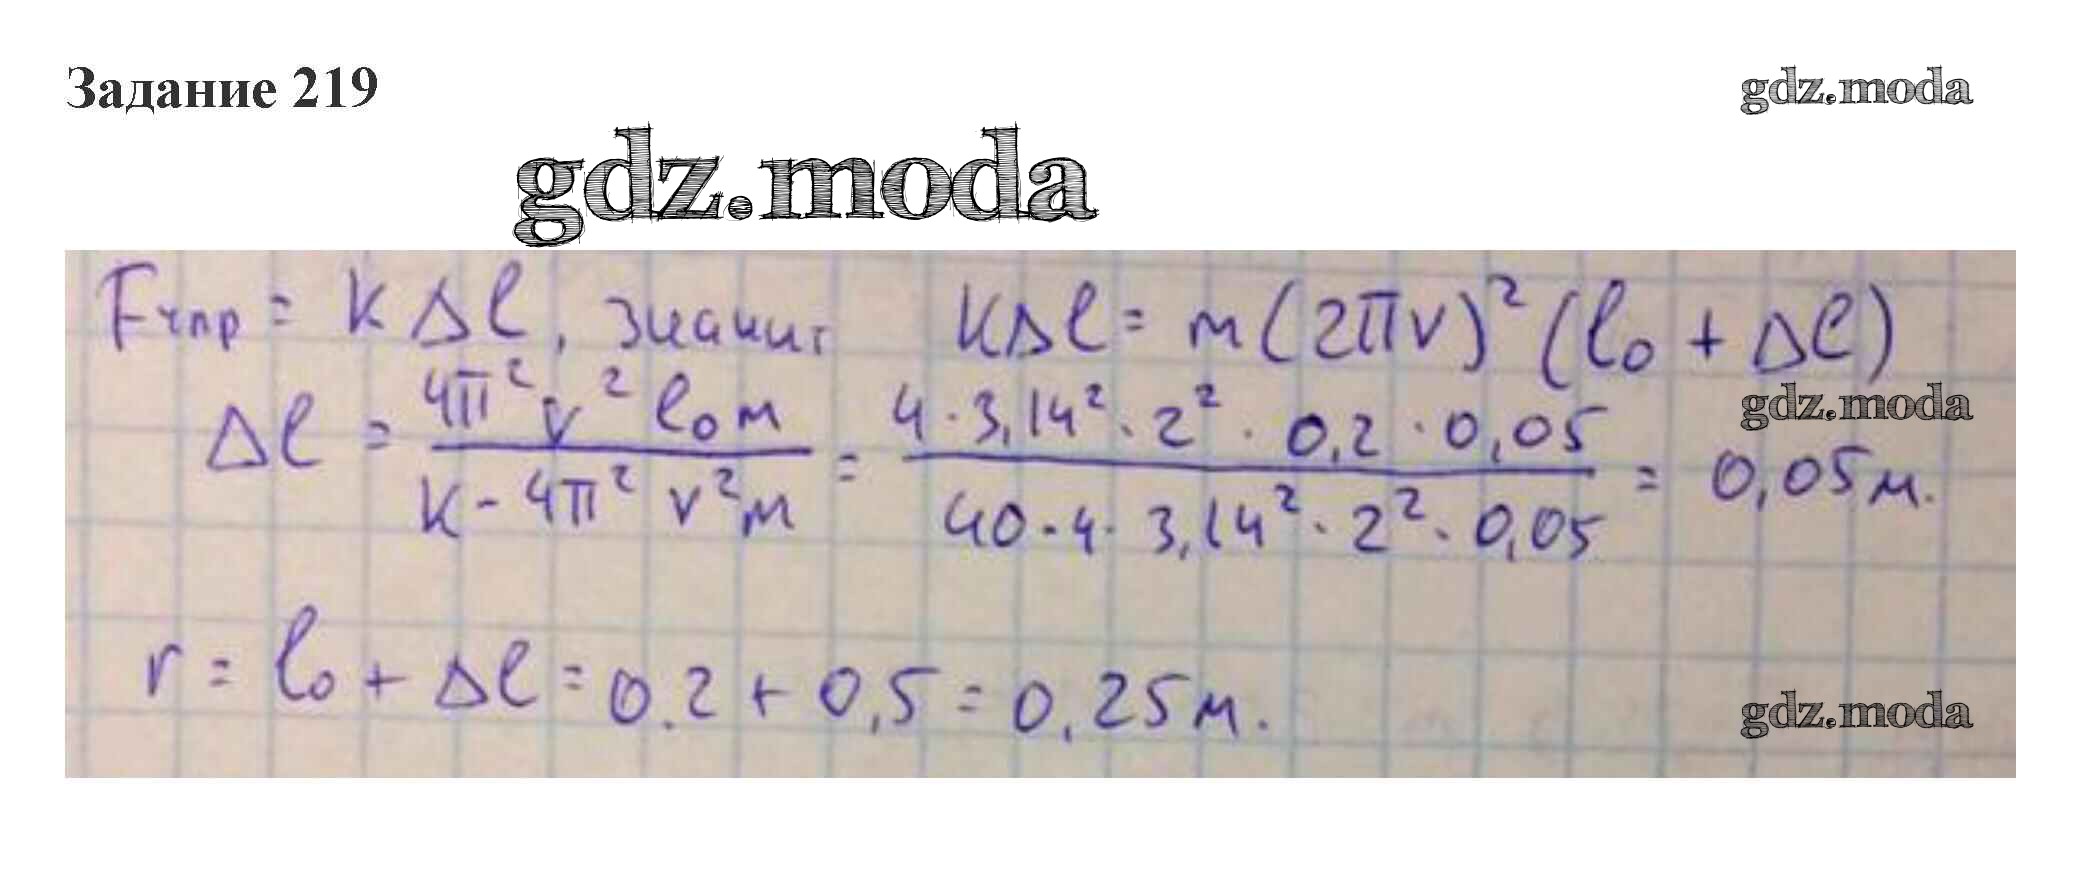 Задание 219
gdz.moda
gdz.moda
Fупр = k Δl, значит kΔl = m(2πν)² (l₀ + Δl)
Δl = 4π² ν² l₀ m / k - 4π² ν² m = 4 · 3,14² · 2² · 0,2 · 0,05 / 40 · 4 · 3,14² · 2² · 0,05 = 0,05 м.
gdz.moda
r = l₀ + Δl = 0.2 + 0,5 = 0,25 м.
gdz.moda